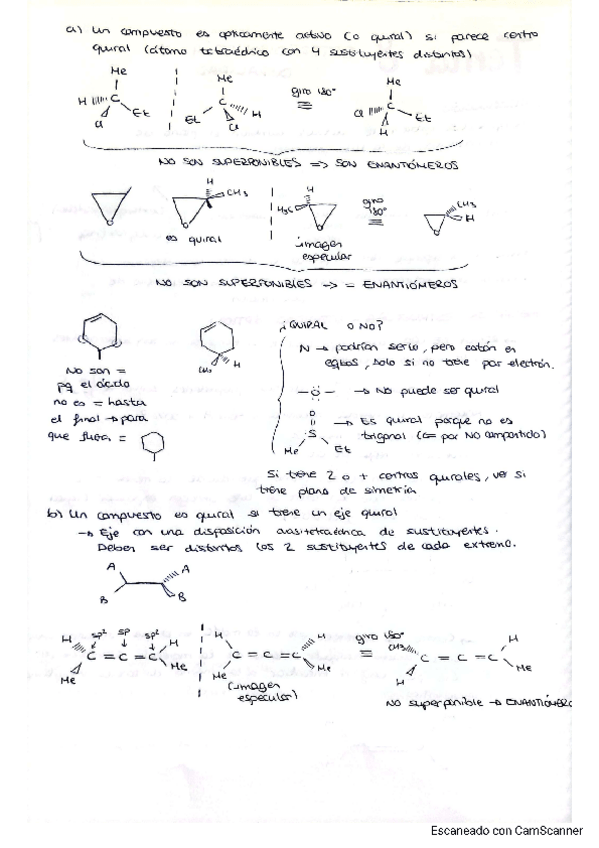 a) Un compuesto es ópticamente activo (o quiral) si parece centro
quiral (átomo tetraédrico con 4 sustituyentes distintos)
Me
H C Et
Cl
Me
Et C H
Cl
giro 180°
Me
Cl C Et
H
NO SON SUPERPONIBLES => SON ENANTIÓMEROS
O
H
CH3
O
es quiral
H
H3C
O
imagen
especular
giro
180°
CH3
H
O
NO SON SUPERPONIBLES -> = ENANTIÓMEROS
No son =
pq el ácido
no es = hasta
el final -> para
que fuera =
CH3 H
¿QUIRAL O NO?
N -> podrían serlo, pero están en
eqbos, solo si no tiene par electrón.
-Ö- -> No puede ser quiral
O
S
Me Et
-> Es quiral porque no es
trigonal (e= par NO compartido)
Si tiene 2 o + centros quirales, ver si
tiene plano de simetría
b) Un compuesto es quiral si tiene un eje quiral
-> Eje con una disposición cuasitetraédrica de sustituyentes.
Deben ser distintos los 2 sustituyentes de cada extremo.
A A
B B
sp² sp sp²
H H
C = C = C
Me Me
H H
C = C = C
Me Me
(imagen
especular)
giro 180°
CH3 H
C = C = C
H Me
No superponible -> ENANTIÓMERO
Escaneado con CamScanner